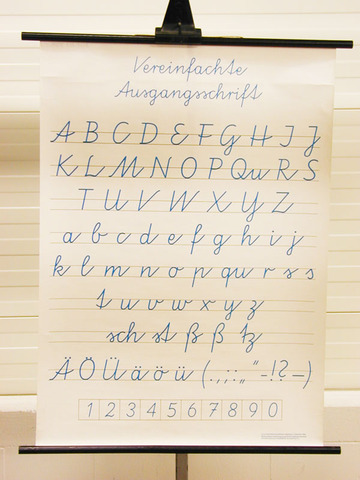 Vereinfachte
Ausgangsschrift
A B C D E F G H I J
K L M N O P Qu R S
T U V W X Y Z
a b c d e f g h i j
k l m n o p qu r s s
t u v w x y z
sch st ß ß tz
Ä Ö Ü ä ö ü (.,;:„“-!?–)
1 2 3 4 5 6 7 8 9 0